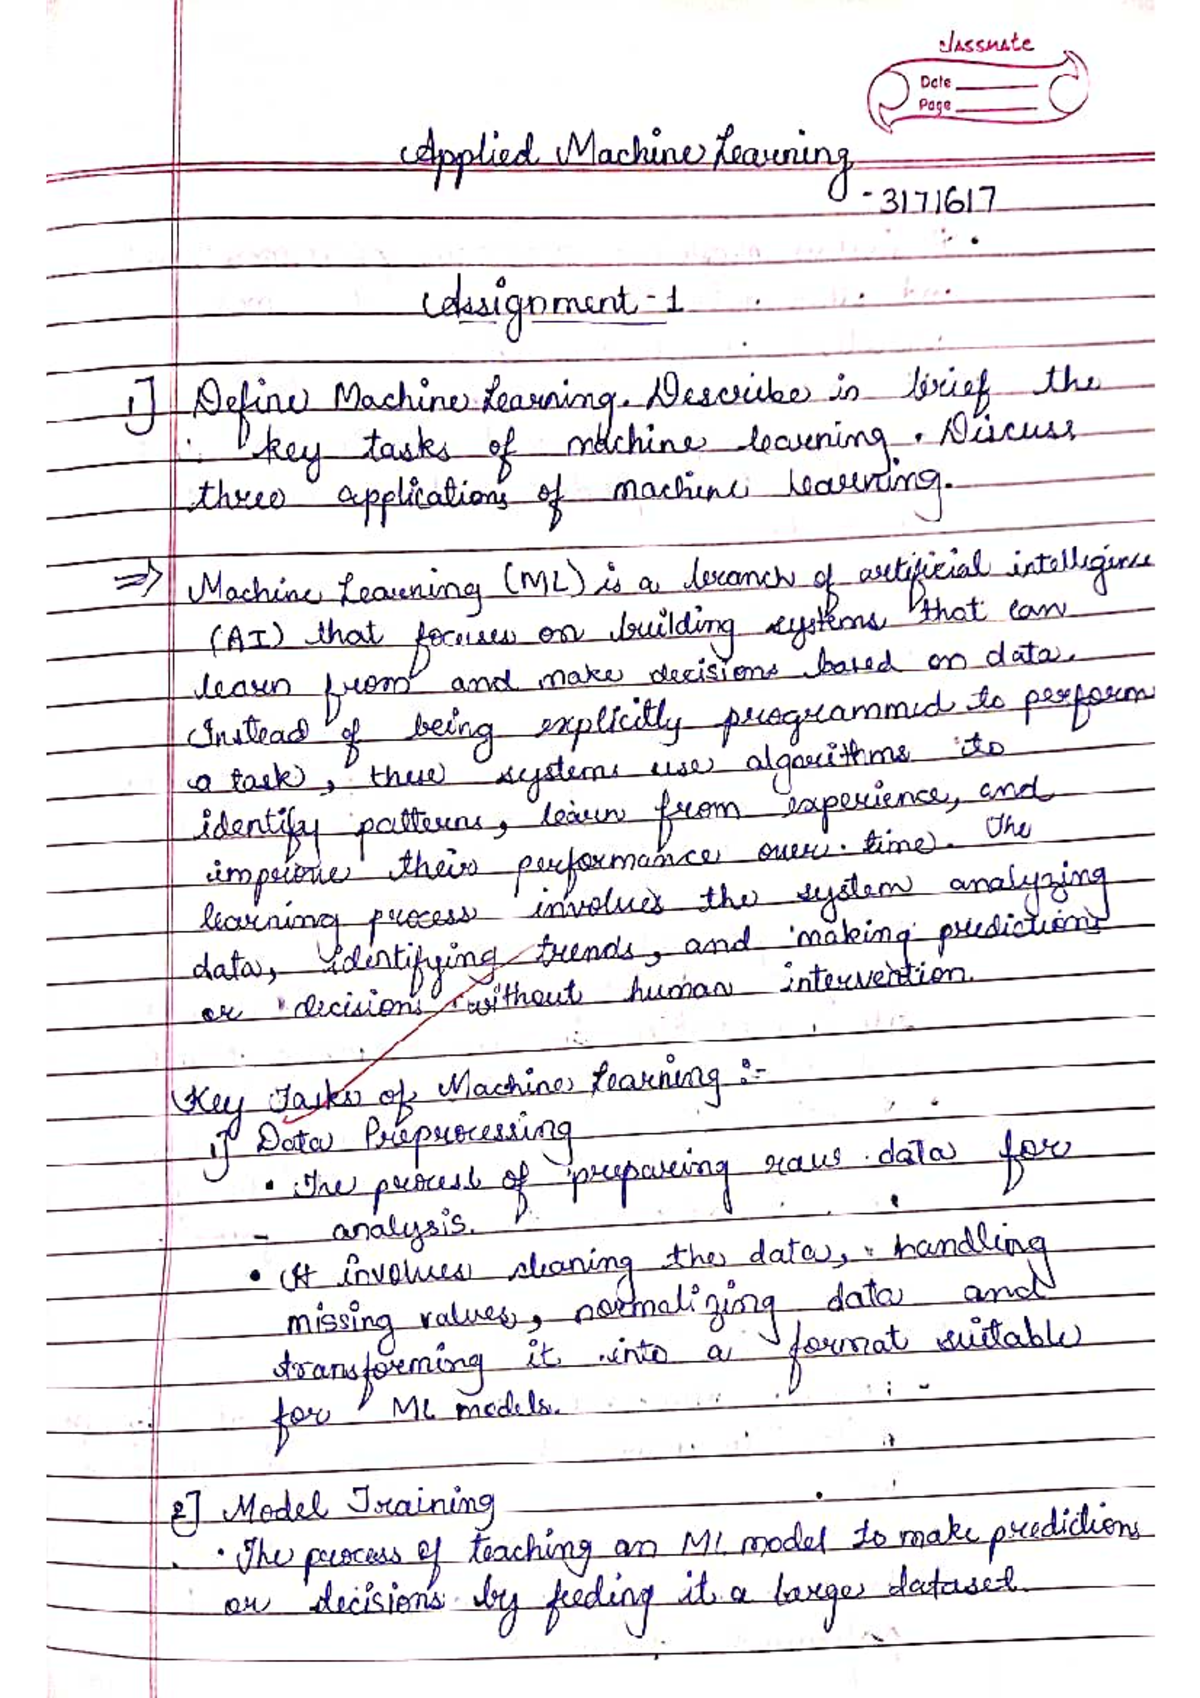 classmate
Date
Page
Applied Machine Learning
- 3171617
Assignment - 1
1] Define Machine Learning. Describe in brief the
key tasks of machine learning. Discuss
three applications of machine learning.
⇒ Machine Learning (ML) is a branch of artificial intelligence
(AI) that focuses on building systems that can
learn from and make decisions based on data.
Instead of being explicitly programmed to perform
a task, these systems use algorithms to
identify patterns, learn from experience, and
improve their performance over time. The
learning process involves the system analyzing
data, identifying trends, and making predictions
or decisions without human intervention.
Key Tasks of Machine Learning :-
1] Data Preprocessing
• The process of preparing raw data for
analysis.
• It involves cleaning the data, handling
missing values, normalizing data and
transforming it into a format suitable
for ML models.
2] Model Training
• The process of teaching an ML model to make predictions
or decisions by feeding it a large dataset.